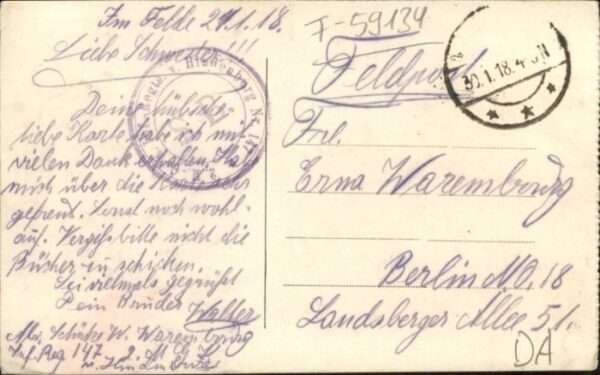 Im Felde 29.1.18.
Liebe Schwester!!!
Deine hübsche
liebe Karte habe ich mit
vielen Dank erhalten. Habe
mich über die Karte sehr
gefreut. Sonst noch wohl-
auf. Vergiß bitte nicht die
Bücher zu schicken.
Sei vielmals gegrüßt
Dein Bruder Walter
Abs. Schütze W. Waremburg
Inf. Reg 147 2. M.G.K.
F-59134
Feldpost
30.1.18.4-5N
Frl.
Erna Waremburg
Berlin N.O. 18
Landsberger Allee 51.
DA
Hindenburg Nr. 147